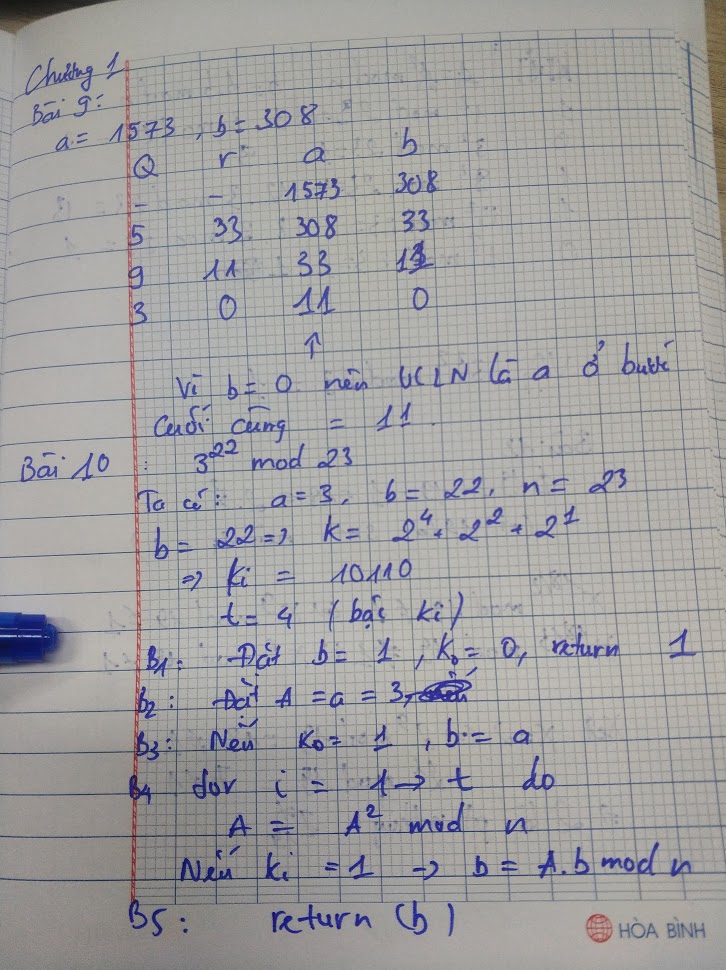 Chương 1
Bài 9:
a = 1573, b = 308
Q r a b
- - 1573 308
5 33 308 33
9 11 33 11
3 0 11 0
↑
Vì b = 0 nên UCLN là a ở bước
cuối cùng = 11.
Bài 10: 3²² mod 23
Ta có: a = 3, b = 22, n = 23
b = 22 => k = 2⁴ + 2² + 2¹
=> ki = 10110
t = 4 (bậc ki)
B1: Đặt b = 1, K₀ = 0, return 1
B2: Đặt A = a = 3,
B3: Nếu K₀ = 1, b = a
B4 for i = 1 → t do
A = A² mod n
Nếu ki = 1 → b = A.b mod n
B5: return (b)
HÒA BÌNH